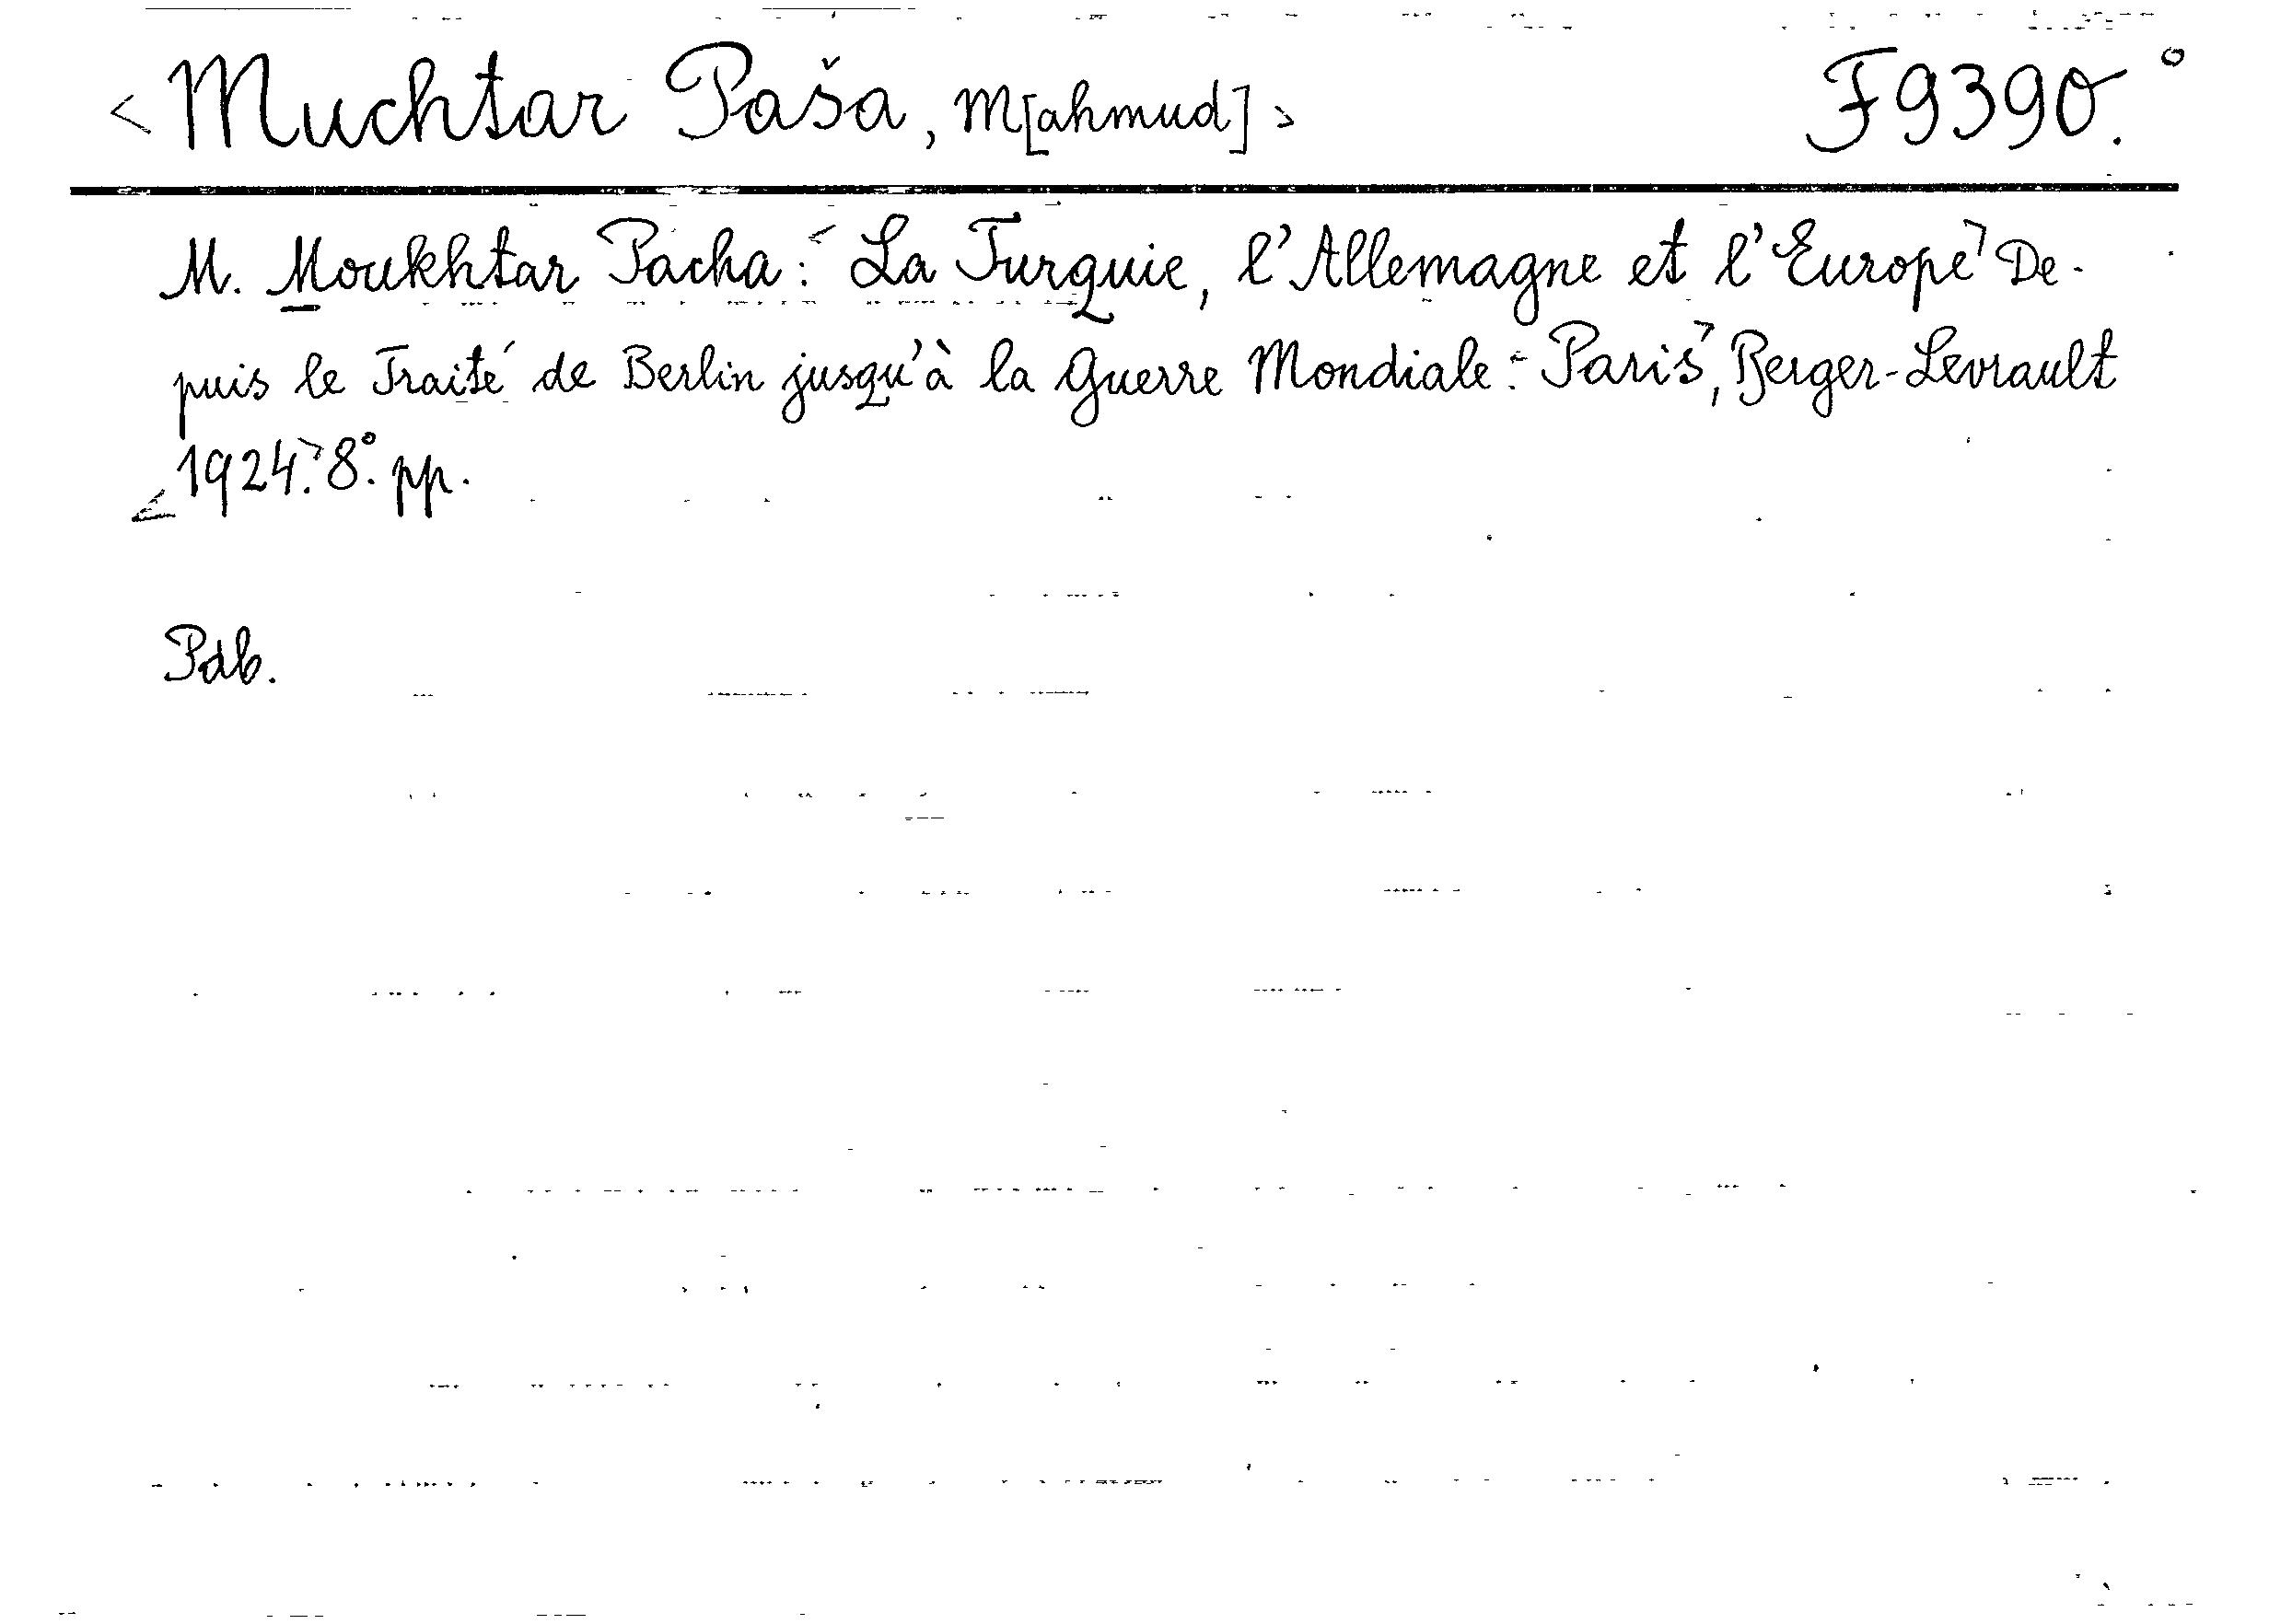 <Muchtar Paša, M[ahmud]> F9390.°
M. Moukhtar Pacha: <La Turquie, l'Allemagne et l'Europe> De-
puis le Traité de Berlin jusqu'à la Guerre Mondiale: <Paris>, Berger-Levrault
<1924.> 8°. pp.
Pdb.